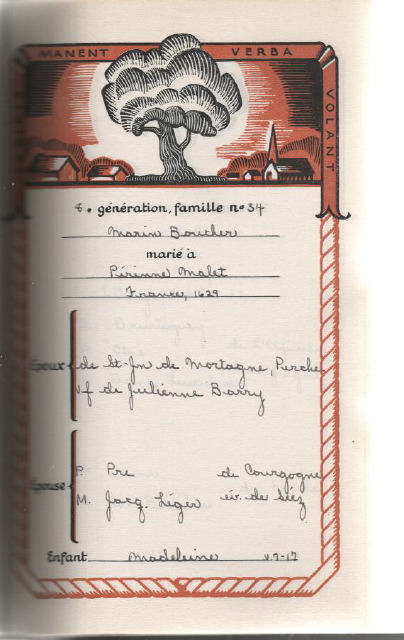 MANENT VERBA VOLANT
8e génération, famille nº 34
Marin Boucher
marié à
Périnne Malet
France, 1629
Époux de St-Jn de Mortagne, Perche
vf de Julienne Barry
P. Pre de Courgogne
Épouse
M. Jacq. Léger év. de Séez
Enfant Madeleine v.7-17